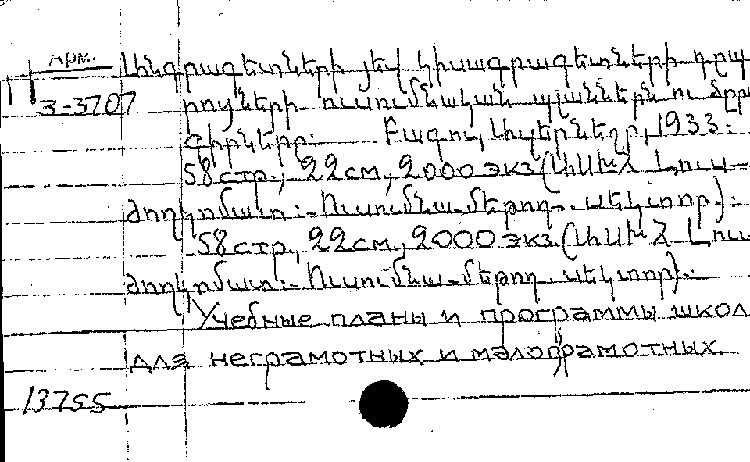 Арм.
Անգրագետների յեվ կիսագրագետների դպ
րոցների ուսումնական պլաններն ու ծրա
3-3707
գիրները: Բագու, Ադերնեշր, 1933:
58 стр., 22 см, 2000 экз. (ԱԽՍՀ Լուս-
ժողկոմատ:-Ուսումնա-մեթոդ. սեկտոր):
58 стр., 22 см, 2000 экз. (ԱԽՍՀ Լու
ժողկոմատ:- Ուսումնա-մեթոդ. սեկտոր):
Учебные планы и программы школ
для неграмотных и малограмотных.
13755